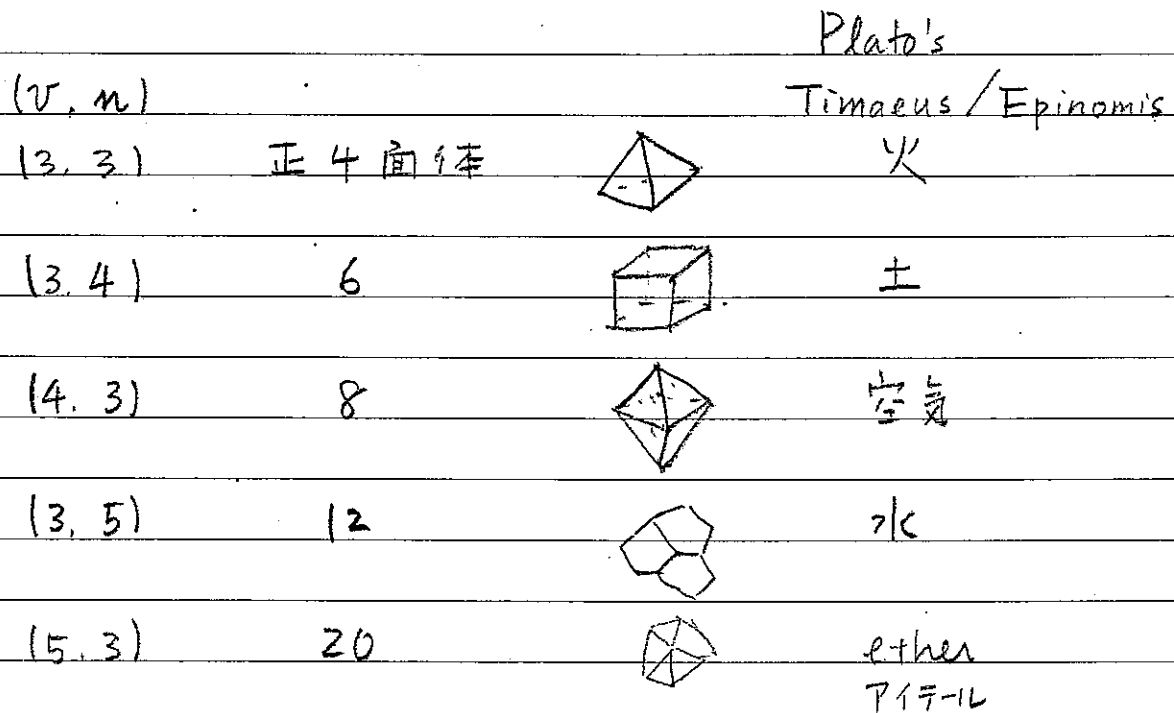 Plato's
(v, n) Timaeus / Epinomis
(3. 3) 正4面体 火
(3. 4) 6 土
(4. 3) 8 空気
(3, 5) 12 水
(5. 3) 20 ether
アイテール